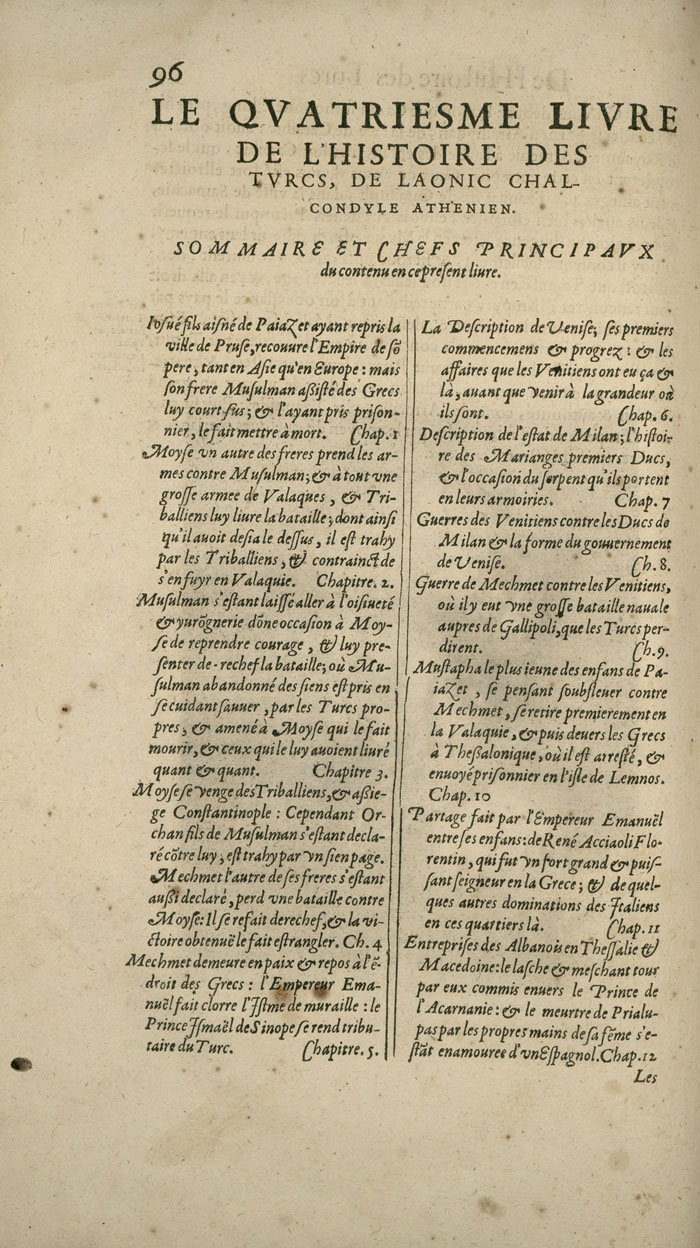 96
LE QVATRIESME LIVRE
DE L'HISTOIRE DES
TVRCS, DE LAONIC CHAL-
CONDYLE ATHENIEN.
SOMMAIRE ET CHEFS PRINCIPAVX
du contenu en ce preſent liure.
Ioſué fils aiſné de Paiazet ayant repris la
ville de Pruſe, recouure l'Empire de ſõ
pere, tant en Aſie qu'en Europe : mais
ſon frere Muſulman aßiſté des Grecs
luy court ſus; & l'ayant pris priſon-
nier, le fait mettre à mort. Chap. 1
Moyſe vn autre des freres prend les ar-
mes contre Muſulman; & à tout vne
groſſe armee de Valaques, & Tri-
balliens luy liure la bataille; dont ainſi
qu'il auoit deſia le deſſus, il eſt trahy
par les Triballiens, & contrainct de
s'enfuyr en Valaquie. Chapitre. 2.
Muſulman s'eſtant laiſſé aller à l'oiſiueté
& yurõgnerie dõne occaſion à Moy-
ſe de reprendre courage, & luy pre-
ſenter de-rechef la bataille; où Mu-
ſulman abandonné des ſiens eſt pris en
ſe cuidant ſauuer, par les Turcs pro-
pres, & amené à Moyſe qui le fait
mourir, & ceux qui le luy auoient liuré
quant & quant. Chapitre 3.
Moyſe ſe venge des Triballiens, & aßie-
ge Conſtantinople : Cependant Or-
chan fils de Muſulman s'eſtant decla-
ré cõtre luy, eſt trahy par vn ſien page.
Mechmet l'autre de ſes freres s'eſtant
außi declaré, perd vne bataille contre
Moyſe: Il ſe refait derechef, & la vi-
ctoire obtenuë le fait eſtrangler. Ch. 4
Mechmet demeure en paix & repos à l'ẽ-
droit des Grecs : l'Empereur Ema-
nuël fait clorre l'Iſtme de muraille : le
Prince Iſmaël de Sinope ſe rend tribu-
taire du Turc. Chapitre. 5.
La Deſcription de Veniſe; ſes premiers
commencemens & progrez : & les
affaires que les Venitiens ont eu ça &
là, auant que venir à la grandeur où
ils ſont. Chap. 6.
Deſcription de l'eſtat de Milan; l'hiſtoi-
re des Marianges premiers Ducs,
& l'occaſion du ſerpent qu'ils portent
en leurs armoiries. Chap. 7
Guerres des Venitiens contre les Ducs de
Milan & la forme du gouuernement
de Veniſe. Ch. 8.
Guerre de Mechmet contre les Venitiens,
où il y eut vne groſſe bataille nauale
aupres de Gallipoli, que les Turcs per-
dirent. Ch. 9.
Muſtapha le plus ieune des enfans de Pa-
iazet, ſe penſant ſoubſleuer contre
Mechmet, ſe retire premierement en
la Valaquie, & puis deuers les Grecs
à Theßalonique, où il eſt arreſté, &
enuoyé priſonnier en l'iſle de Lemnos.
Chap. 10
Partage fait par l'Empereur Emanuël
entre ſes enfans: de René Acciaoli Flo-
rentin, qui fut vn fort grand & puiſ-
ſant ſeigneur en la Grece; & de quel-
ques autres dominations des Italiens
en ces quartiers là. Chap. 11
Entrepriſes des Albanois en Theſſalie &
Macedoine: le laſche & meſchant tour
par eux commis enuers le Prince de
l'Acarnanie : & le meurtre de Prialu-
pas par les propres mains de ſa fẽme s'e-
ſtãt enamouree d'vn Eſpagnol. Chap. 12
Les